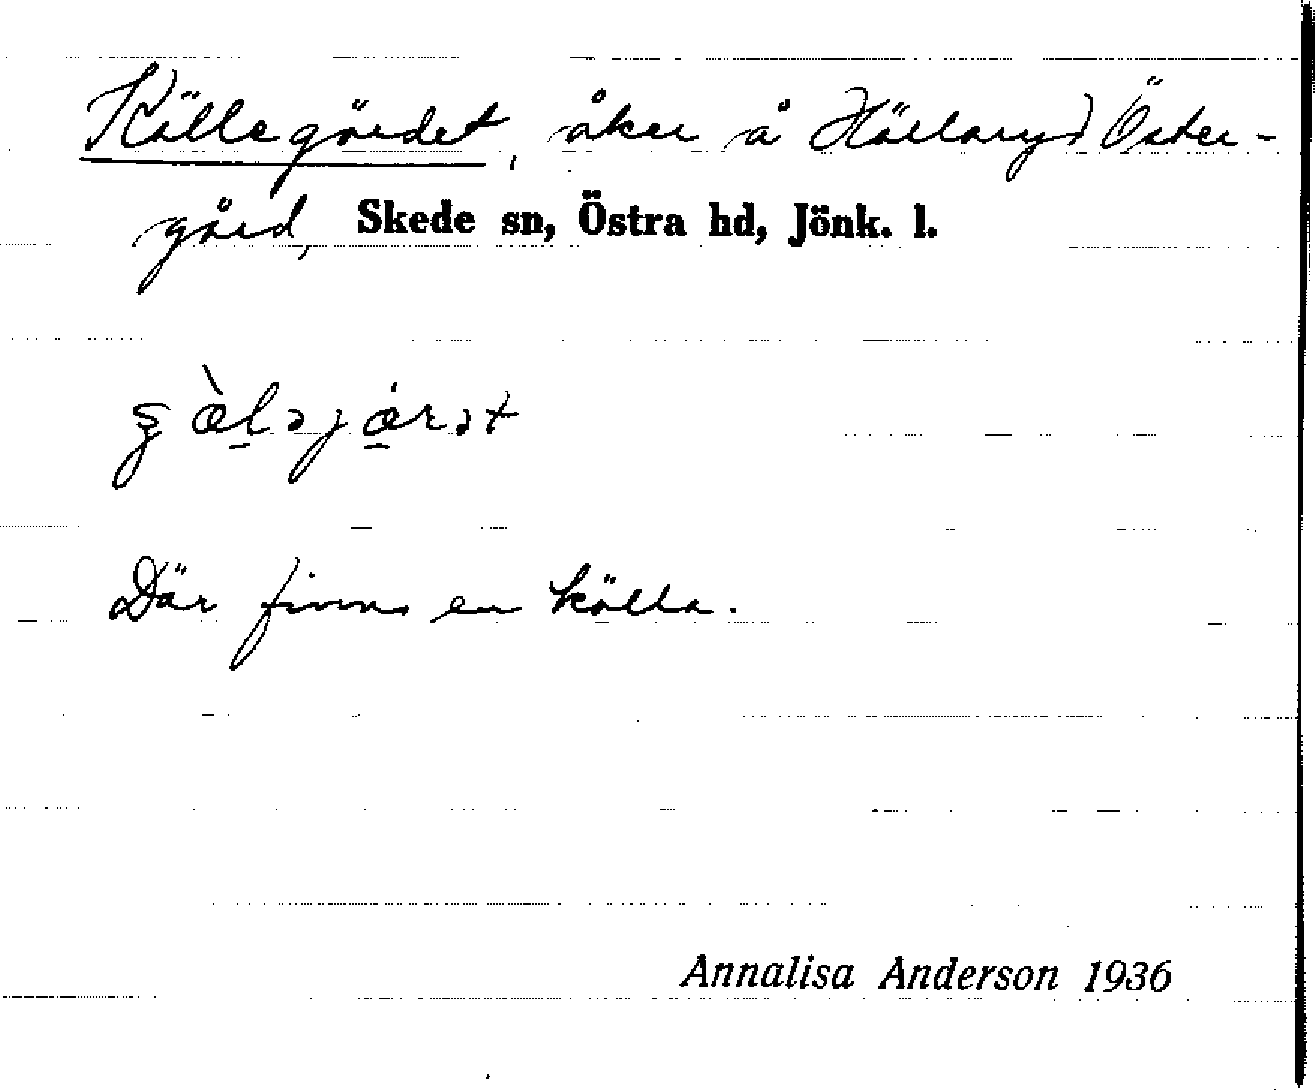 Källegärdet, åker å Hällaryd Öster-
gård, Skede sn, Östra hd, Jönk. l.
Där finns en källa.
Annalisa Anderson 1936